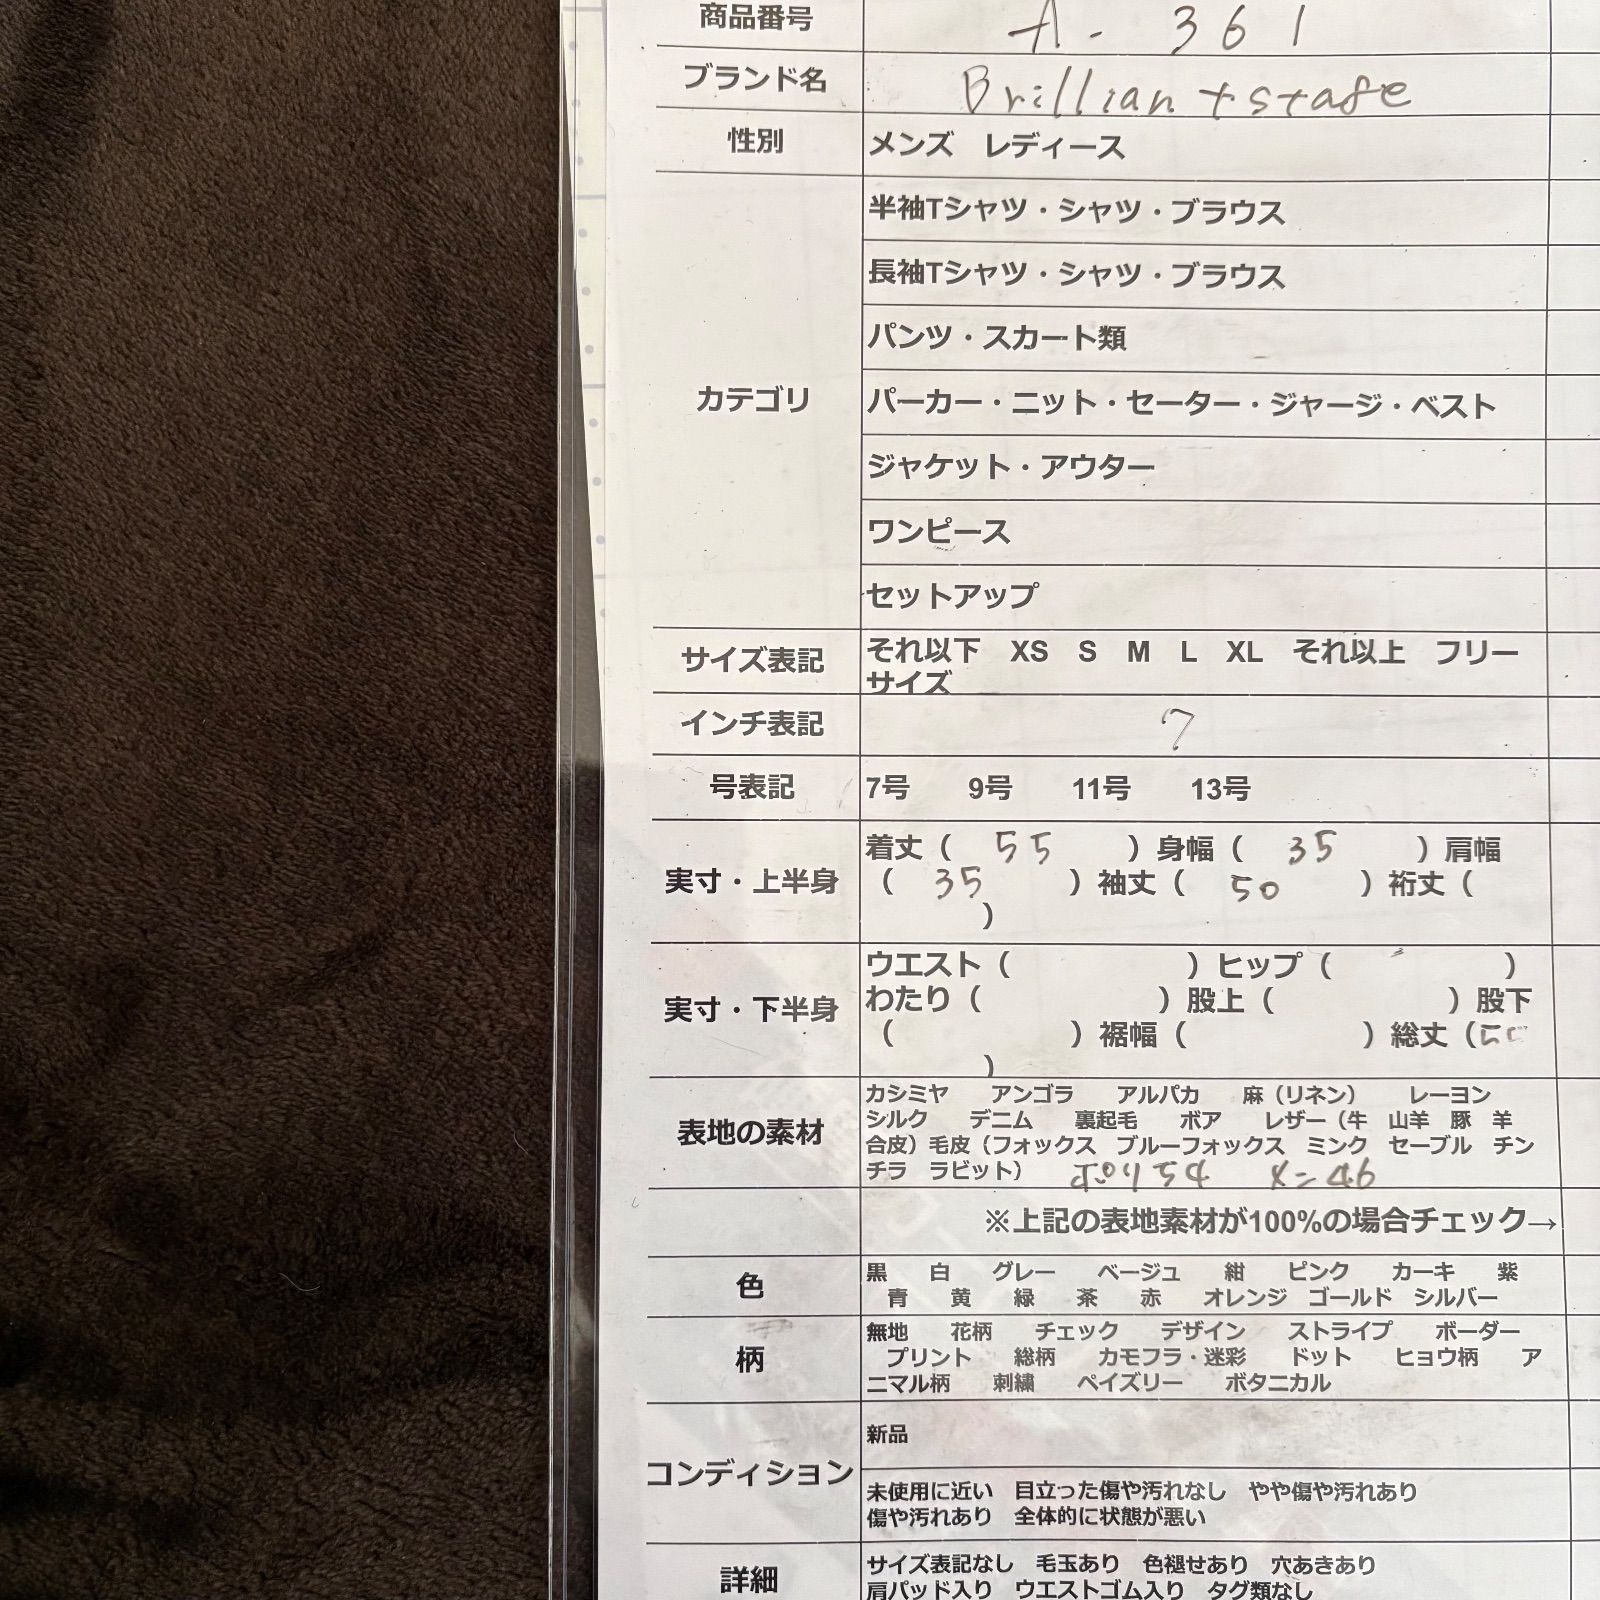 商品番号 A- 361
ブランド名 Brilliantstage
性別 メンズ レディース
半袖Tシャツ・シャツ・ブラウス
長袖Tシャツ・シャツ・ブラウス
パンツ・スカート類
カテゴリ パーカー・ニット・セーター・ジャージ・ベスト
ジャケット・アウター
ワンピース
セットアップ
サイズ表記 それ以下 XS S M L XL それ以上 フリー
サイズ
インチ表記 7
号表記 7号 9号 11号 13号
着丈（ 55 ）身幅（ 35 ）肩幅
実寸・上半身 （ 35 ）袖丈（ 50 ）裄丈（
）
ウエスト（ ）ヒップ（ ）
実寸・下半身 わたり（ ）股上（ ）股下
（ ）裾幅（ ）総丈（
）
カシミヤ アンゴラ アルパカ 麻（リネン） レーヨン
表地の素材 シルク デニム 裏起毛 ボア レザー（牛 山羊 豚 羊
合皮）毛皮（フォックス ブルーフォックス ミンク セーブル チン
チラ ラビット） ポリ54 メ=46
※上記の表地素材が100%の場合チェック→
色 黒 白 グレー ベージュ 紺 ピンク カーキ 紫
青 黄 緑 茶 赤 オレンジ ゴールド シルバー
柄 無地 花柄 チェック デザイン ストライプ ボーダー
プリント 総柄 カモフラ・迷彩 ドット ヒョウ柄 ア
ニマル柄 刺繍 ペイズリー ボタニカル
コンディション 新品
未使用に近い 目立った傷や汚れなし やや傷や汚れあり
傷や汚れあり 全体的に状態が悪い
詳細 サイズ表記なし 毛玉あり 色褪せあり 穴あきあり
肩パッド入り ウエストゴム入り タグ類なし